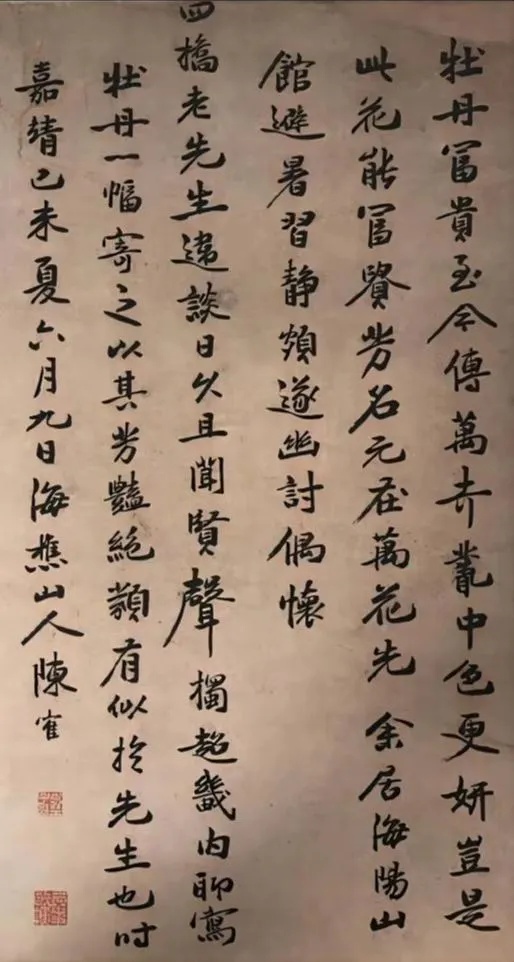 牡丹富貴至今傳萬卉叢中色更妍豈是
此花能富貴芳名元在萬花先余居海陽山
館避暑習静頗遂幽討偶懷
四橋老先生違談日久且聞賢聲獨超畿内聊寫
牡丹一幅寄之以其芳豔絕類有似於先生也時
嘉靖己未夏六月九日海樵山人陳寉